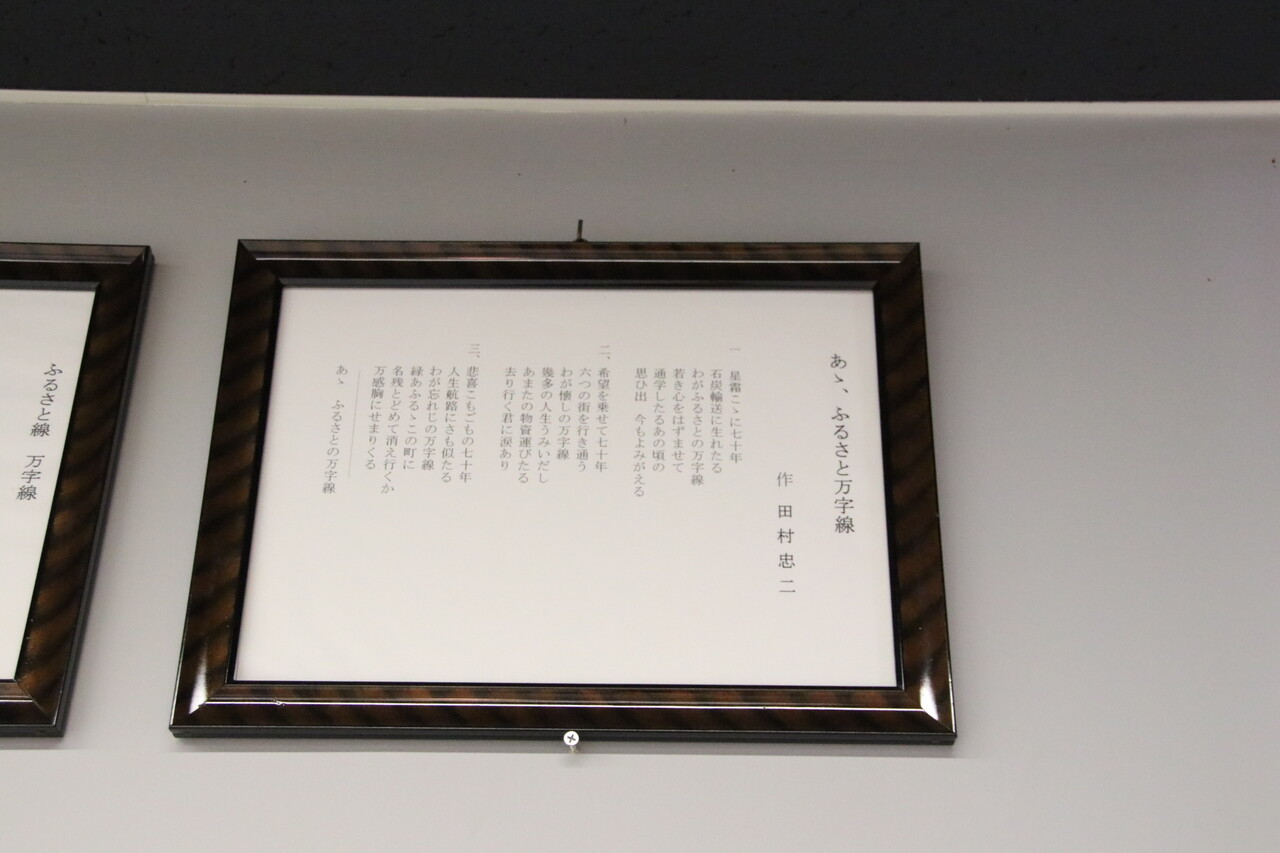 あゝ、ふるさと万字線
作 田村忠二
一 星霜こゝに七十年
石炭輸送に生れたる
わがふるさとの万字線
若き心をはずませて
通学したるあの頃の
思ひ出 今もよみがえる
二、希望を乗せて七十年
六つの街を行き通う
わが懐しの万字線
幾多の人生うみいだし
あまたの物資運びたる
去り行く君に涙あり
三、悲喜こもごもの七十年
人生航路にさも似たる
わが忘れじの万字線
緑あふるゝこの町に
名残とどめて消え行くか
万感胸にせまりくる
あゝ ふるさとの万字線
ふるさと線 万字線